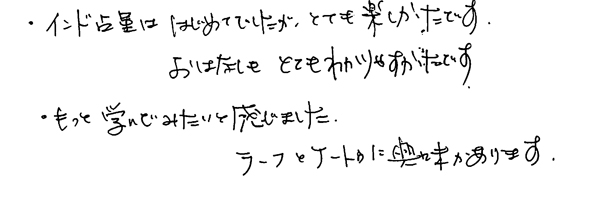 ・インド占星は はじめてでしたが、とても楽しかったです.
おはなしも とてもわかりやすかったです
・もっと学んでみたいと感じました.
ラーフとケートゥに興味があります.